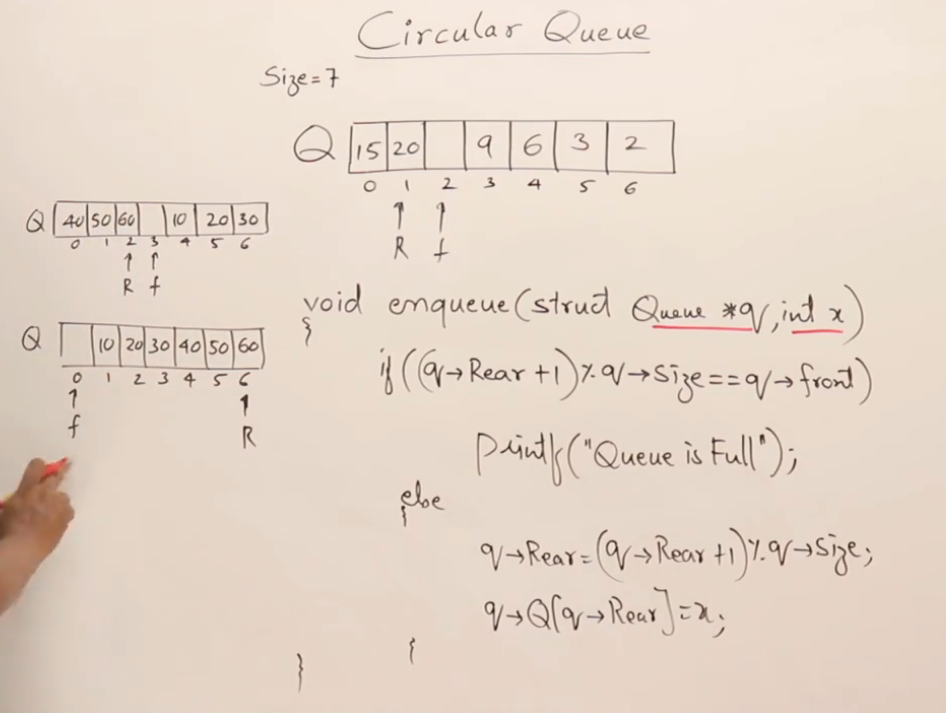 Circular Queue
Size=7
Q 15 20 9 6 3 2
0 1 2 3 4 5 6
R f
Q 40 50 60 10 20 30
0 1 2 3 4 5 6
R f
Q 10 20 30 40 50 60
0 1 2 3 4 5 6
f R
void enqueue(struct Queue *q, int x)
{
if((q→Rear+1)%q→Size==q→front)
printf("Queue is Full");
else
{
q→Rear=(q→Rear+1)%q→Size;
q→Q[q→Rear]=x;
}
}